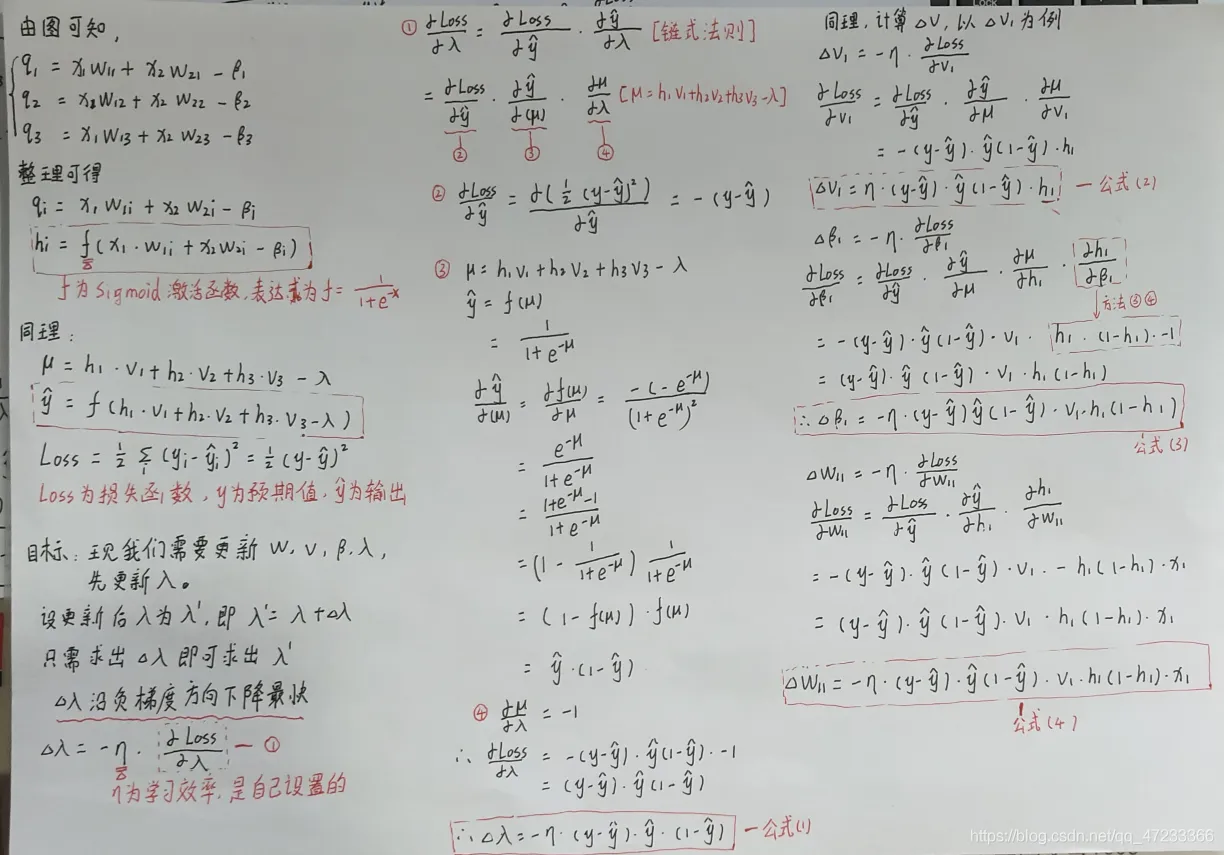 由图可知,
q₁ = x₁w₁₁ + x₂w₂₁ - β₁
q₂ = x₁w₁₂ + x₂w₂₂ - β₂
q₃ = x₁w₁₃ + x₂w₂₃ - β₃
整理可得
qᵢ = x₁w₁ᵢ + x₂w₂ᵢ - βᵢ
hᵢ = f(x₁·w₁ᵢ + x₂w₂ᵢ - βᵢ)
f为Sigmoid激活函数,表达式为f = 1/(1+e^-x)
同理:
μ = h₁·v₁ + h₂·v₂ + h₃·v₃ - λ
ŷ = f(h₁·v₁ + h₂·v₂ + h₃·v₃ - λ)
Loss = ½ Σᵢ (yᵢ-ŷᵢ)² = ½(y-ŷ)²
Loss为损失函数, y为预期值, ŷ为输出
目标: 现我们需要更新 W, v, β, 入,
先更新入。
设更新后入为λ', 即 λ' = λ + Δλ
只需求出 Δλ 即可求出 λ'
Δλ沿负梯度方向下降最快
Δλ = -η · ∂Loss/∂λ — ①
η为学习效率, 是自己设置的
① ∂Loss/∂λ = ∂Loss/∂ŷ · ∂ŷ/∂λ [链式法则]
= ∂Loss/∂ŷ · ∂ŷ/∂(μ) · ∂μ/∂λ [μ = h₁v₁+h₂v₂+h₃v₃-λ]
② ③ ④
② ∂Loss/∂ŷ = ∂(½(y-ŷ)²)/∂ŷ = -(y-ŷ)
③ μ = h₁v₁ + h₂v₂ + h₃v₃ - λ
ŷ = f(μ)
= 1/(1+e^-μ)
∂ŷ/∂(μ) = ∂f(μ)/∂μ = -(-e^-μ)/(1+e^-μ)²
= e^-μ/(1+e^-μ)
= (1+e^-μ-1)/(1+e^-μ)
= (1 - 1/(1+e^-μ)) 1/(1+e^-μ)
= (1-f(μ))·f(μ)
= ŷ·(1-ŷ)
④ ∂μ/∂λ = -1
∴ ∂Loss/∂λ = -(y-ŷ)·ŷ(1-ŷ)·-1
= (y-ŷ)·ŷ(1-ŷ)
∴ Δλ = -η·(y-ŷ)·ŷ·(1-ŷ) — 公式(1)
同理, 计算ΔV, 以ΔV₁为例
ΔV₁ = -η · ∂Loss/∂v₁
∂Loss/∂v₁ = ∂Loss/∂ŷ · ∂ŷ/∂μ · ∂μ/∂v₁
= -(y-ŷ)·ŷ(1-ŷ)·h₁
ΔV₁ = η·(y-ŷ)·ŷ(1-ŷ)·h₁ — 公式(2)
Δβ₁ = -η · ∂Loss/∂β₁
∂Loss/∂β₁ = ∂Loss/∂ŷ · ∂ŷ/∂μ · ∂μ/∂h₁ · ∂h₁/∂β₁
方法③④
= -(y-ŷ)·ŷ(1-ŷ)·v₁·h₁·(1-h₁)·-1
= (y-ŷ)·ŷ(1-ŷ)·v₁·h₁(1-h₁)
∴ Δβ₁ = -η·(y-ŷ)ŷ(1-ŷ)·v₁·h₁(1-h₁)
公式(3)
ΔW₁₁ = -η · ∂Loss/∂W₁₁
∂Loss/∂W₁₁ = ∂Loss/∂ŷ · ∂ŷ/∂h₁ · ∂h₁/∂W₁₁
= -(y-ŷ)·ŷ(1-ŷ)·v₁·-h₁(1-h₁)·x₁
= (y-ŷ)·ŷ(1-ŷ)·v₁·h₁(1-h₁)·x₁
ΔW₁₁ = -η·(y-ŷ)·ŷ(1-ŷ)·v₁·h₁(1-h₁)·x₁
公式(4)
https://blog.csdn.net/qq_47233366